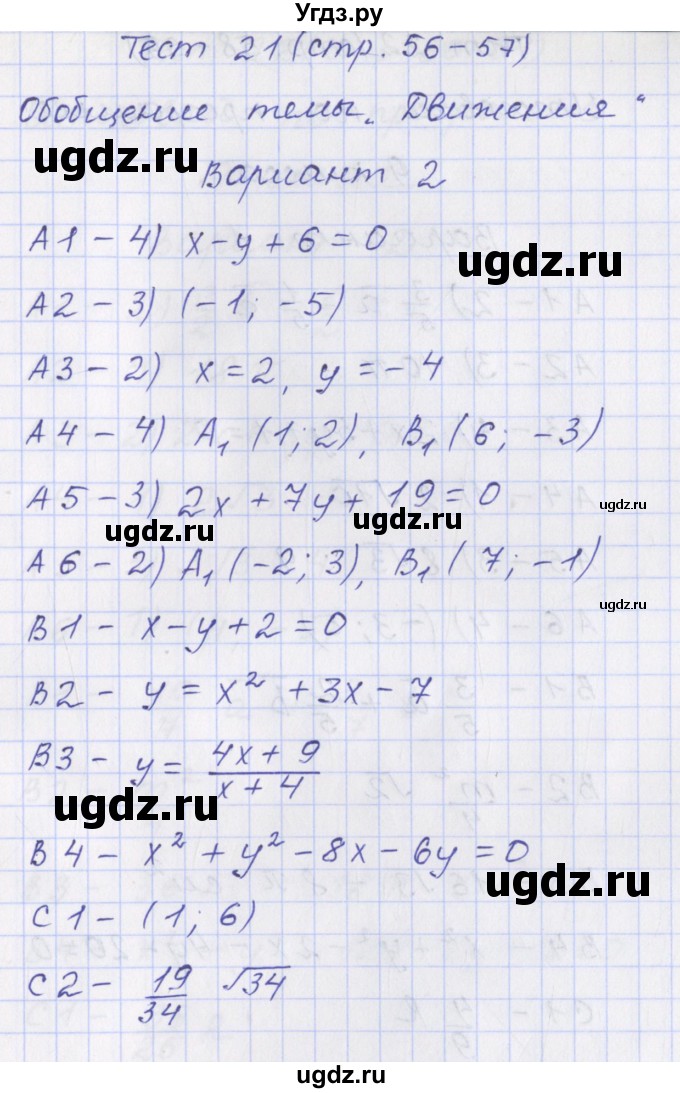 Угдз.ру
Тест 21 (стр. 56-57)
Обобщение темы „Движения“
ugdz.ru
Вариант 2
А1 - 4) x-y+6=0
ugdz.ru
А2 - 3) (-1; -5)
А3 - 2) x=2, y=-4
А4 - 4) A₁ (1; 2), B₁ (6; -3)
А5 - 3) 2x+7y+19=0
ugdz.ru
ugdz.ru
ugdz.ru
А6 - 2) A₁ (-2; 3), B₁ (7; -1)
ugdz.ru
В1 - x-y+2=0
В2 - y = x² + 3x - 7
В3 - y = (4x+9)/(x+4)
ugdz.ru
В4 - x² + y² - 8x - 6y = 0
ugdz.ru
С1 - (1; 6)
С2 - 19/34 √34
ugdz.ru